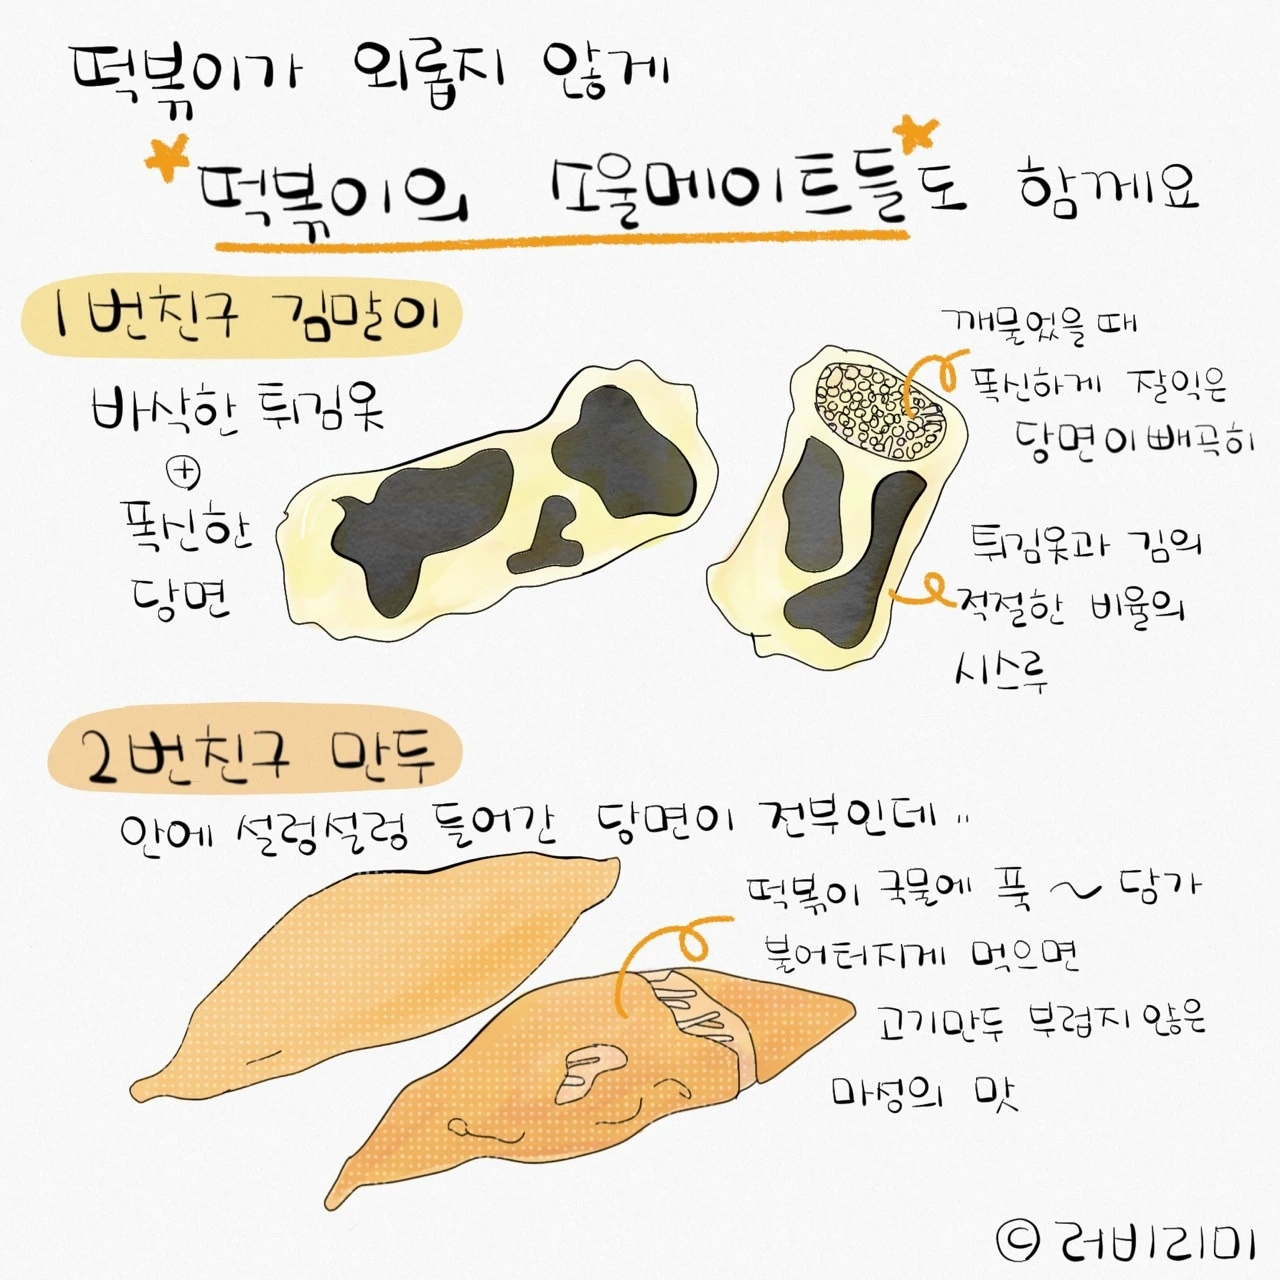 떡볶이가 외롭지 않게
떡볶이의 소울메이트들도 함께요
1번친구 김말이
바삭한 튀김옷
+
폭신한
당면
깨물었을 때
폭신하게 잘익은
당면이 빼곡히
튀김옷과 김의
적절한 비율의
시스루
2번친구 만두
안에 설렁설렁 들어간 당면이 전부인데..
떡볶이 국물에 푹 ~ 담가
불어터지게 먹으면
고기만두 부럽지 않은
마성의 맛
© 러비리미